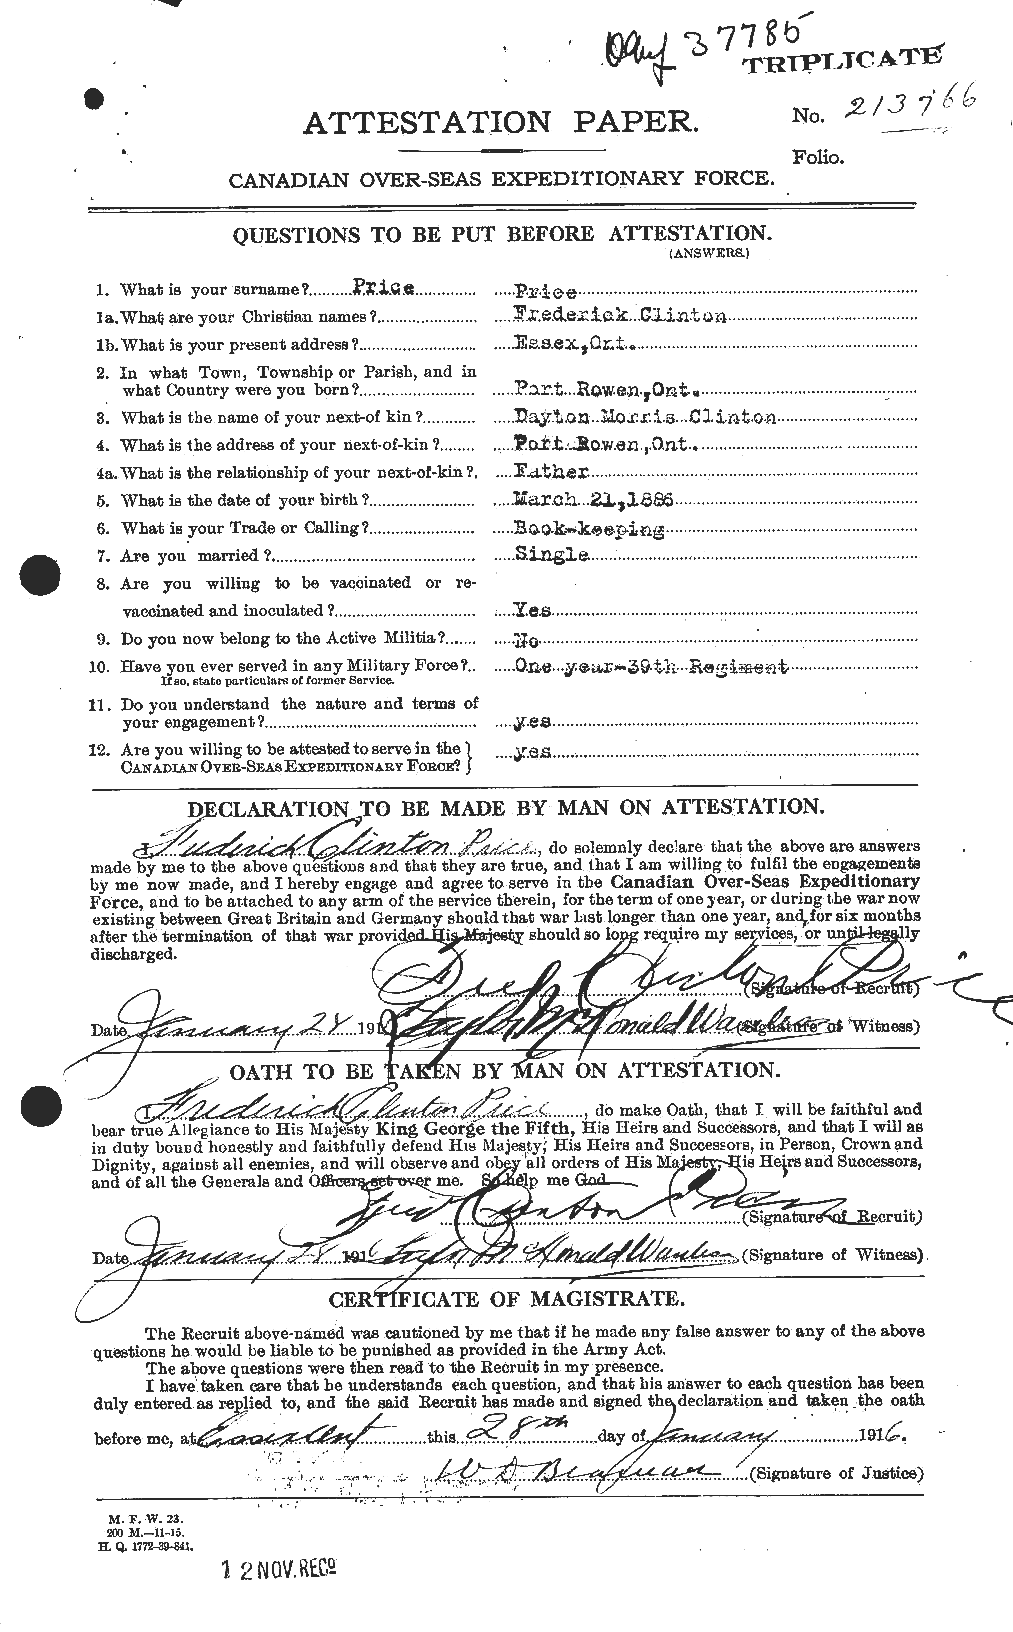 37785
TRIPLICATE
ATTESTATION PAPER.
No. 213766
Folio.
CANADIAN OVER-SEAS EXPEDITIONARY FORCE.
QUESTIONS TO BE PUT BEFORE ATTESTATION.
(ANSWERS.)
1. What is your surname?........Price............. ....Price
1a. What are your Christian names?.................... ....Frederick Clinton
1b. What is your present address?........................ ....Essex,Ont.
2. In what Town, Township or Parish, and in
what Country were you born?........................ ....Port Rowen,Ont.
3. What is the name of your next-of kin?........... ....Dayton Morris Clinton
4. What is the address of your next-of-kin?........ ....Port Rowen,Ont.
4a. What is the relationship of your next-of-kin?. ....Father
5. What is the date of your birth?...................... ....March 21,1886
6. What is your Trade or Calling?...................... ....Book-keeping
7. Are you married?....................................... ....Single
8. Are you willing to be vaccinated or re-
vaccinated and inoculated?............................ ....Yes
9. Do you now belong to the Active Militia?...... ....No
10. Have you ever served in any Military Force?.. ....One year-39th Regiment
If so, state particulars of former Service.
11. Do you understand the nature and terms of
your engagement?........................................ ....yes
12. Are you willing to be attested to serve in the }
CANADIAN OVER-SEAS EXPEDITIONARY FORCE? } ....yes
DECLARATION TO BE MADE BY MAN ON ATTESTATION.
I, Frederick Clinton Price, do solemnly declare that the above are answers
made by me to the above questions and that they are true, and that I am willing to fulfil the engagements
by me now made, and I hereby engage and agree to serve in the Canadian Over-Seas Expeditionary
Force, and to be attached to any arm of the service therein, for the term of one year, or during the war now
existing between Great Britain and Germany should that war last longer than one year, and for six months
after the termination of that war provided His Majesty should so long require my services, or until legally
discharged.
Fred Clinton Price (Signature of Recruit)
Date January 28 191 (Signature of Witness)
OATH TO BE TAKEN BY MAN ON ATTESTATION.
I, Frederick Clinton Price, do make Oath, that I will be faithful and
bear true Allegiance to His Majesty King George the Fifth, His Heirs and Successors, and that I will as
in duty bound honestly and faithfully defend His Majesty, His Heirs and Successors, in Person, Crown and
Dignity, against all enemies, and will observe and obey all orders of His Majesty, His Heirs and Successors,
and of all the Generals and Officers set over me. So help me God.
Fred Clinton Price (Signature of Recruit)
Date January 28 1916 (Signature of Witness)
CERTIFICATE OF MAGISTRATE.
The Recruit above-named was cautioned by me that if he made any false answer to any of the above
questions he would be liable to be punished as provided in the Army Act.
The above questions were then read to the Recruit in my presence.
I have taken care that he understands each question, and that his answer to each question has been
duly entered as replied to, and the said Recruit has made and signed the declaration and taken the oath
before me, at Essex Ont this 28th day of January 1916.
(Signature of Justice)
M. F. W. 23.
200 M.—11-15.
H. Q. 1772-39-841.
12 NOV. RECD